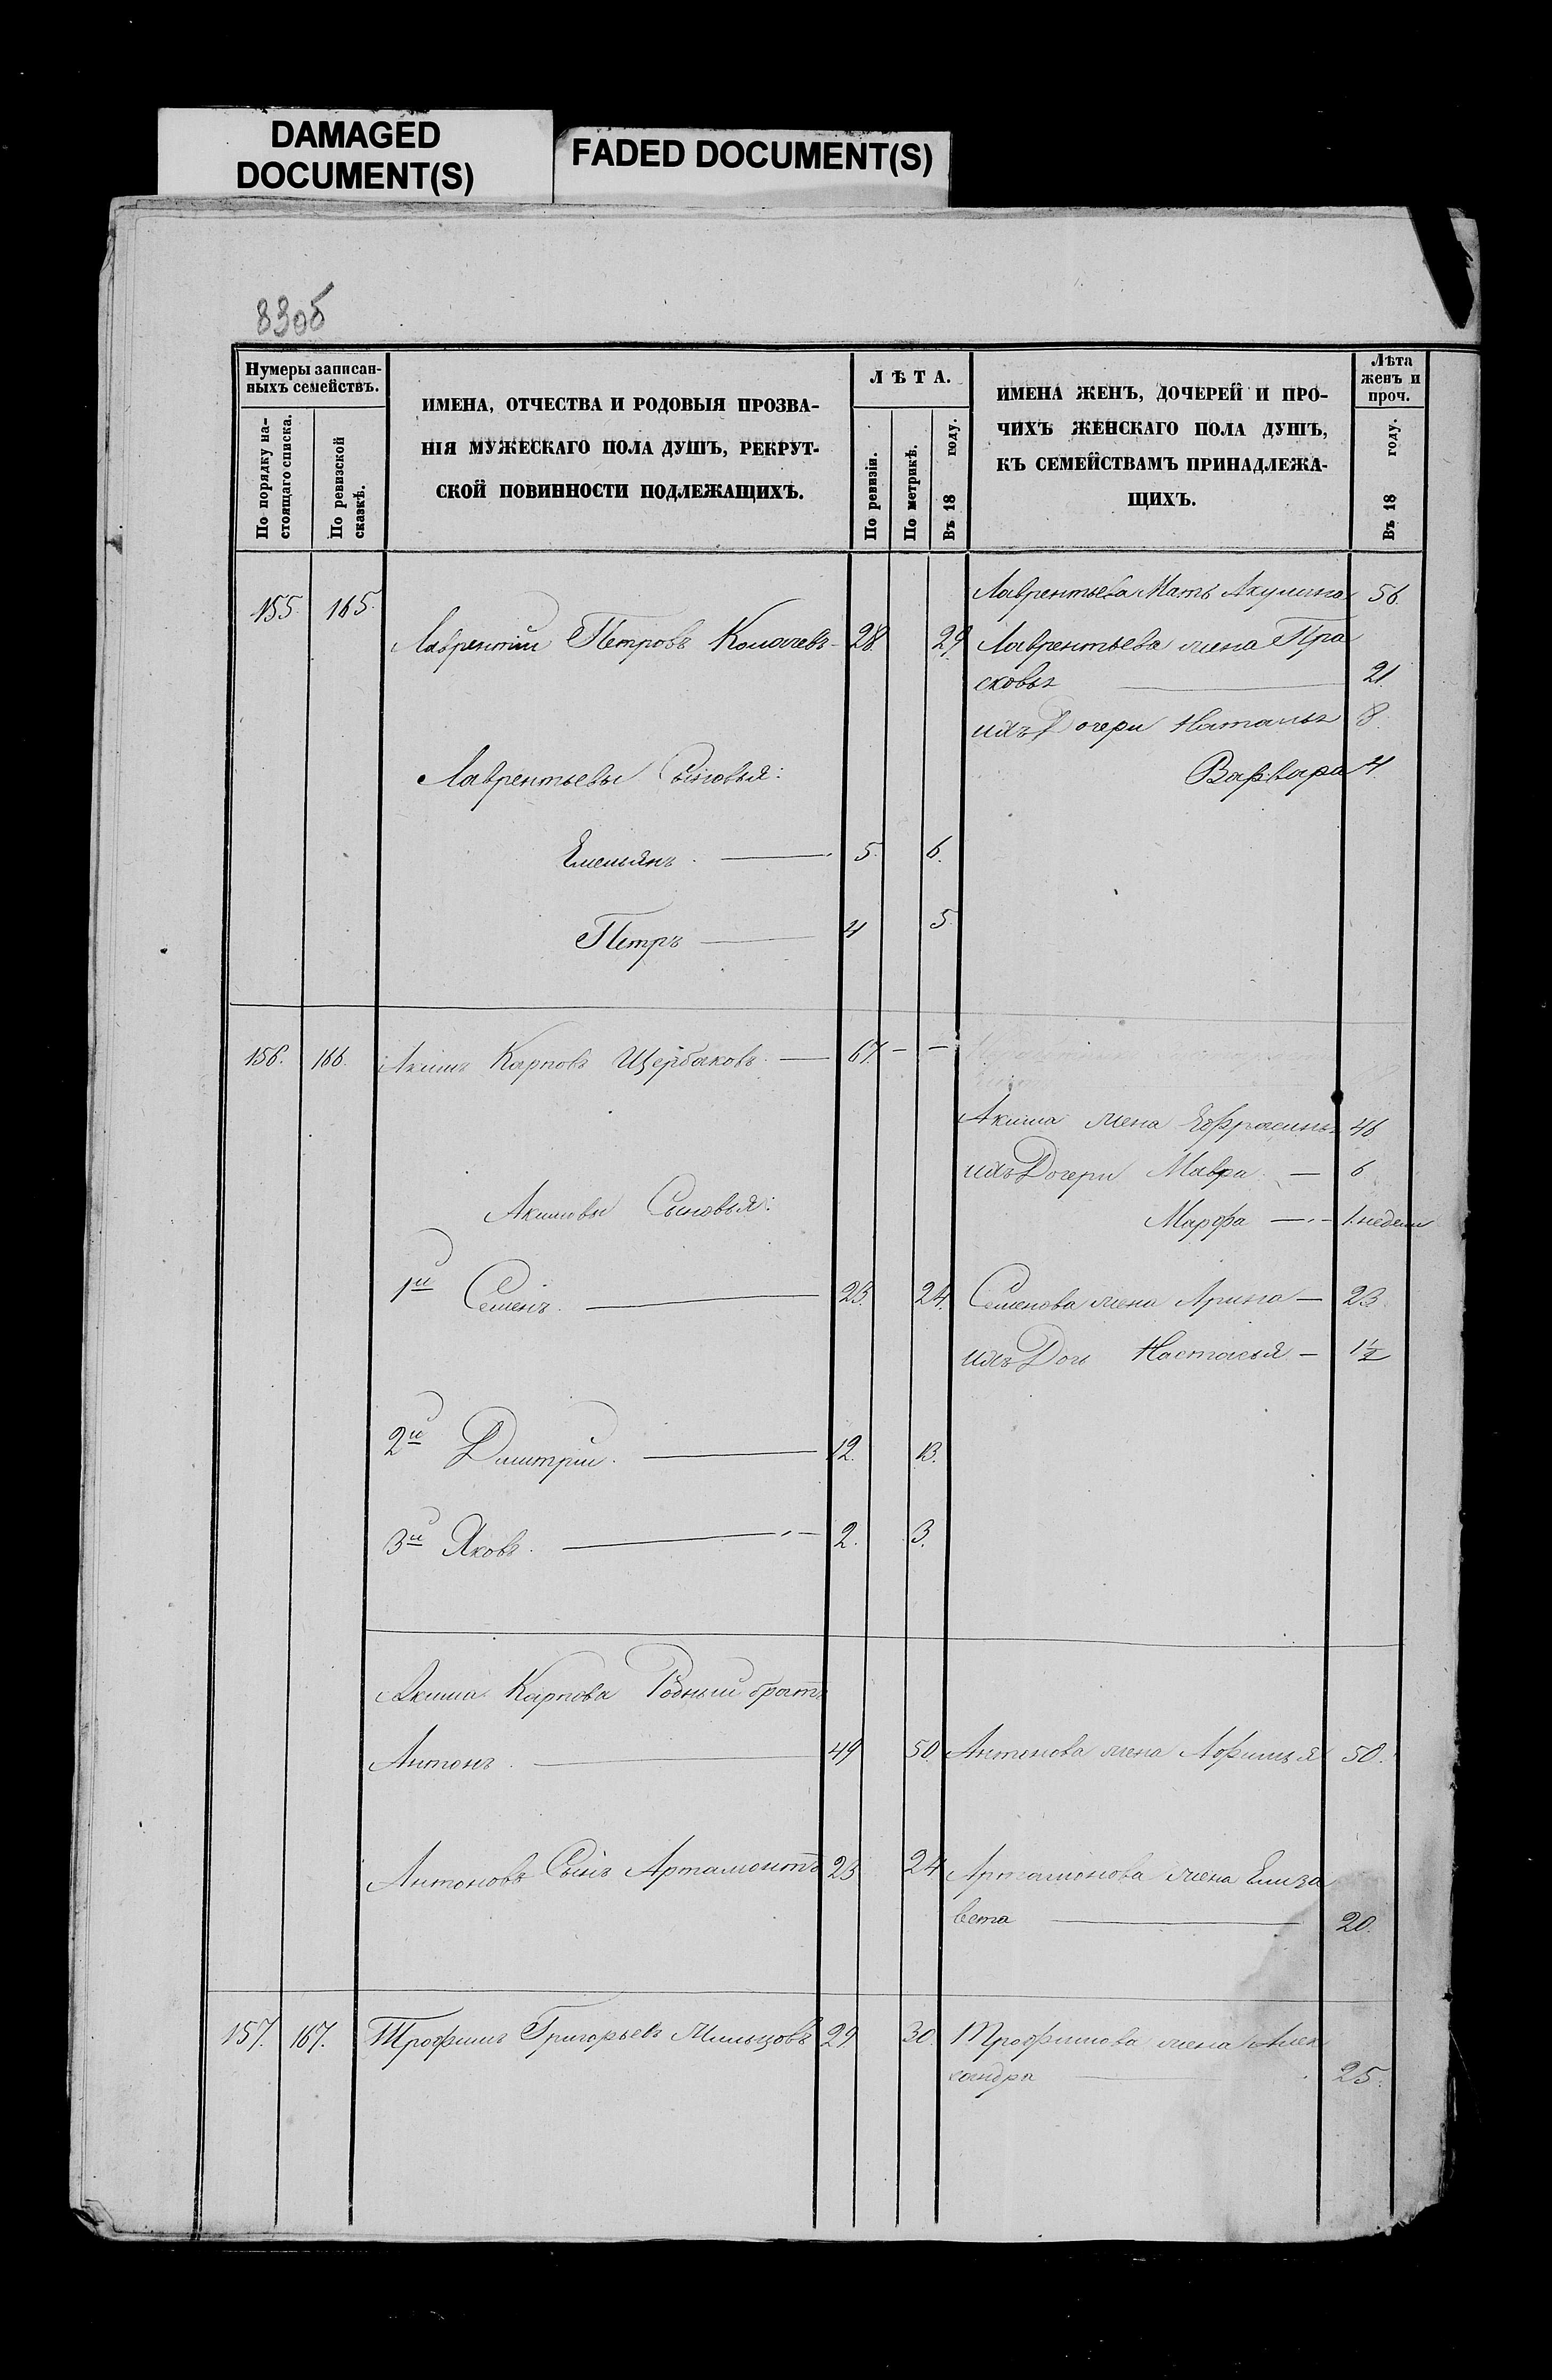 DAMAGED
DOCUMENT(S)
FADED DOCUMENT(S)
830б
Нумеры записан-
ныхъ семействъ.
По порядку на-
стоящаго списка.
По ревизской
сказкѣ.
ИМЕНА, ОТЧЕСТВА И РОДОВЫЯ ПРОЗВА-
НІЯ МУЖЕСКАГО ПОЛА ДУШЪ, РЕКРУТ-
СКОЙ ПОВИННОСТИ ПОДЛЕЖАЩИХЪ.
ЛѢТА.
По ревизіи.
По метрикѣ.
Въ 18 году.
ИМЕНА ЖЕНЪ, ДОЧЕРЕЙ И ПРО-
ЧИХЪ ЖЕНСКАГО ПОЛА ДУШЪ,
КЪ СЕМЕЙСТВАМЪ ПРИНАДЛЕЖА-
ЩИХЪ.
Лѣта
женъ и
проч.
Въ 18 году.
Лаврентьева Мать Акулина 56.
155. 165. Лаврентий Петровъ 28. 29. Лаврентьева жена Пра
сковья 21.
ихъ Дочери Наталья 8.
Варвара 4.
Лаврентьевы Сыновья:
Емельянъ. 5. 6.
Петръ 4 5.
156. 166. Акимъ Карповъ Щербаковъ. 67. — —
Акима жена Ефросинья 46
ихъ Дочери Мавра — 6
Марфа — 1. недели
Акимовы Сыновья:
1й Семенъ. 23. 24. Семенова жена Арина — 23.
ихъ Дочь Настасья — 1½
2й Дмитрий. 12. 13.
3й Яковъ. 2. 3.
Акима Карпова Родный братъ
Антонъ. 49 50. Антонова жена Афимья 50.
Антоновъ Сынъ Артамонтъ 23 24 Артамонова жена Елиза
вета 20.
157. 167. Трофимъ Григорьевъ Мильцовъ 29. 30. Трофимова жена Алек
сандра 25.